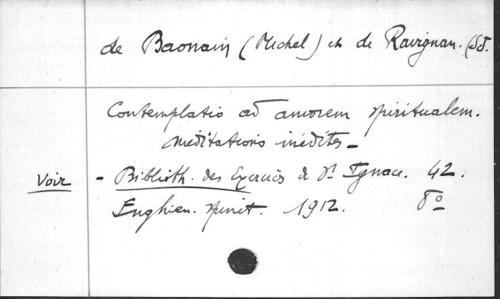 de Baonain (Michel) et de Ravignan. (SJ.
Contemplatio ad amorem spiritualem.
Méditations inédites –
Voir – Biblioth. des Exercices de St Ignace. 42.
Enghien. 1912. 8o